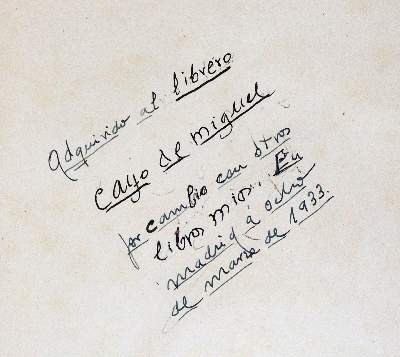 Adquirido al librero
Cayo de Miguel
por cambio con otros
libros mios. En
madrid a ocho
de marzo de 1933.